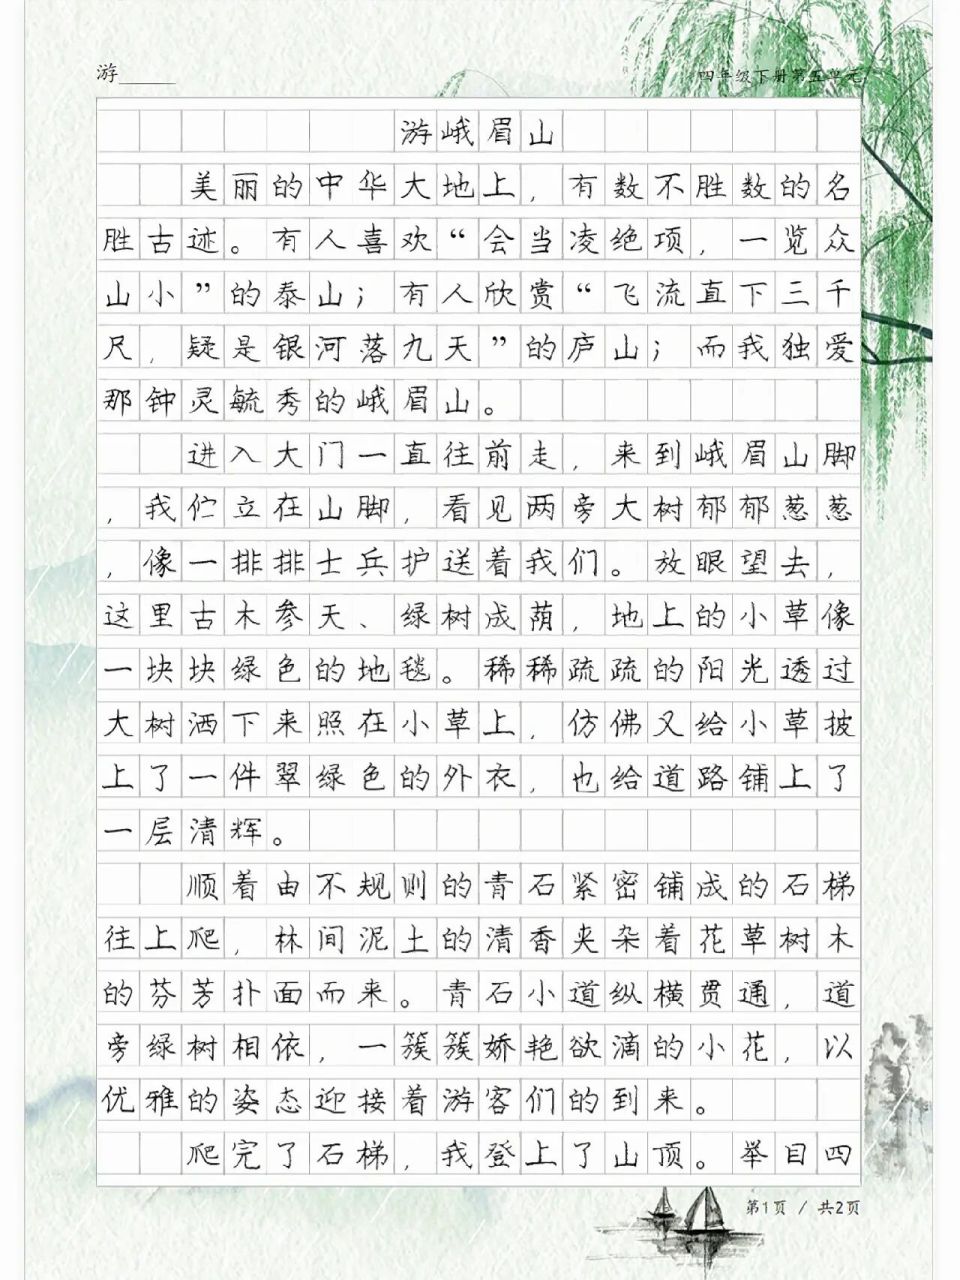 游______
四年级下册第五单元
游峨眉山
美丽的中华大地上，有数不胜数的名
胜古迹。有人喜欢“会当凌绝项，一览众
山小”的泰山；有人欣赏“飞流直下三千
尺，疑是银河落九天”的庐山；而我独爱
那钟灵毓秀的峨眉山。
进入大门一直往前走，来到峨眉山脚
，我伫立在山脚，看见两旁大树郁郁葱葱
，像一排排士兵护送着我们。放眼望去，
这里古木参天、绿树成荫，地上的小草像
一块块绿色的地毯。稀稀疏疏的阳光透过
大树洒下来照在小草上，仿佛又给小草披
上了一件翠绿色的外衣，也给道路铺上了
一层清辉。
顺着由不规则的青石紧密铺成的石梯
往上爬，林间泥土的清香夹杂着花草树木
的芬芳扑面而来。青石小道纵横贯通，道
旁绿树相依，一簇簇娇艳欲滴的小花，以
优雅的姿态迎接着游客们的到来。
爬完了石梯，我登上了山顶。举目四
第1页 / 共2页